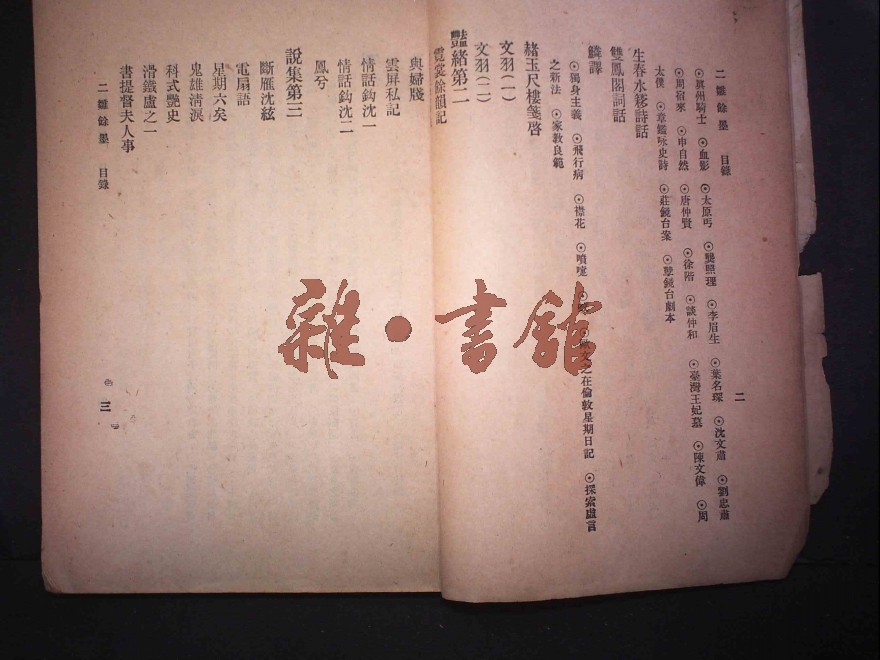 二雛餘墨 目錄 二
⊙真州騎士 ⊙血影 ⊙太原丐 ⊙龔照理 ⊙李眉生 ⊙葉名琛 ⊙沈文肅 ⊙劉忠肅
⊙周宿來 ⊙申自然 ⊙唐仲賢 ⊙徐階 ⊙談仲和 ⊙臺灣王妃墓 ⊙陳文偉 ⊙周
太僕 ⊙章鑑咏史詩 ⊙莊鏡台案 ⊙孽鏡台劇本
生春水簃詩話
雙鳳閣詞話
鱗譯
⊙獨身主義 ⊙飛行病 ⊙襟花 ⊙噴嚏 之在倫敦星期日記 ⊙探索虛言
之新法 ⊙家教良範
赭玉尺樓箋啓
文羽(一)
文羽(二)
豔緒第二
霓裳餘韻記
與婦牋
雲屏私記
情話鈎沈一
情話鈎沈二
鳳兮
說集第三
斷雁沈絃
電扇語
星期六矣
鬼雄淸淚
科式艷史
滑鐵盧之一
書提督夫人事
二雛餘墨 目錄 三
雜·書館